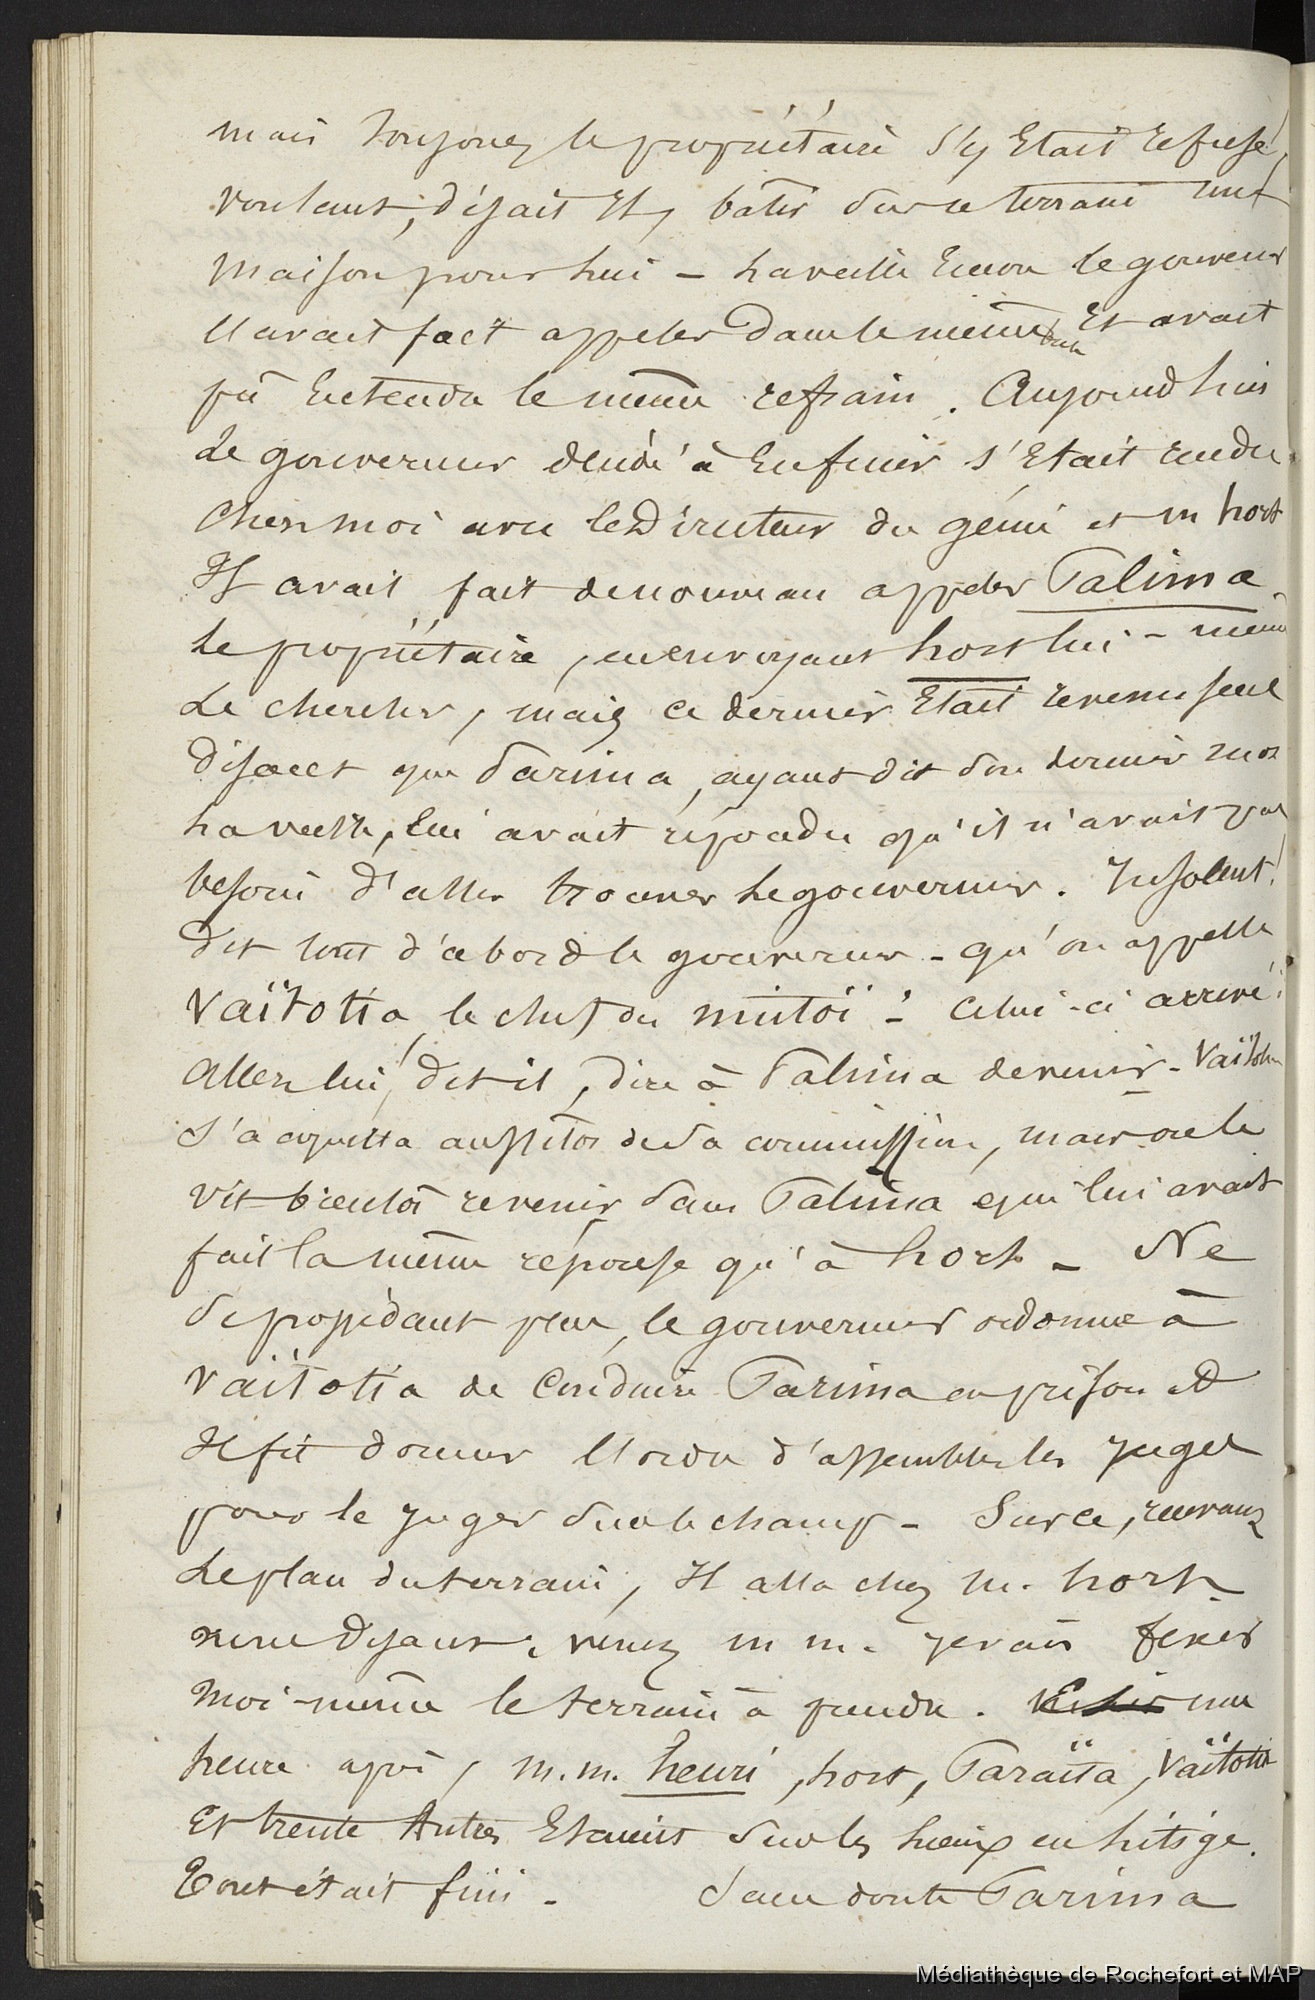 mais toujours le propriétaire s'y Etait refusé,
voulant, disait il, bâtir sur ce terrain une
maison pour lui - la veille Encore le gouverneur
l'avait fait appeler dans le même but Et avait
pû Entendre le même refrain. Aujourd'hui
le gouverneur décidé à En finir s'Etait rendu
chez moi avec le Directeur du génie et m hort
Il avait fait de nouveau appeler Tarima
le propriétaire, en envoyant hort lui-même
le chercher, mais ce dernier Etait revenu seul
disant que Tarima, ayant dit son dernier mot
la veille, lui avait répondu qu'il n'avait pas
besoin d'aller trouver le gouverneur. Insolent!
dit tout d'abord le gouverneur - qu'on appelle
Vaïtotia le chef du mutoï - Celui-ci arrivé:
Allez lui, dit il, dire à Tarima de venir - Vaïtotia
s'acquitta aussitôt de sa commission, mais on le
vit bientôt revenir sans Tarima qui lui avait
fait la même réponse qu'à hort - Ne
se possédant plus, le gouverneur ordonne à
Vaïtotia de conduire Tarima en prison et
Il fit donner l'ordre d'assembler les juges
pour le juger sur le champ - Sur ce,
le plan du terrain, Il alla chez m. hort
me disant: venez m m. je vais fixer
moi-même le terrain à prendre. une
heure après, m.m. henri, hort, Taraïta, Vaïtotia
Et trente Autres Etaient sur les lieux en litige.
Tout était fini - Sans doute Tarima
Médiathèque de Rochefort et MAP